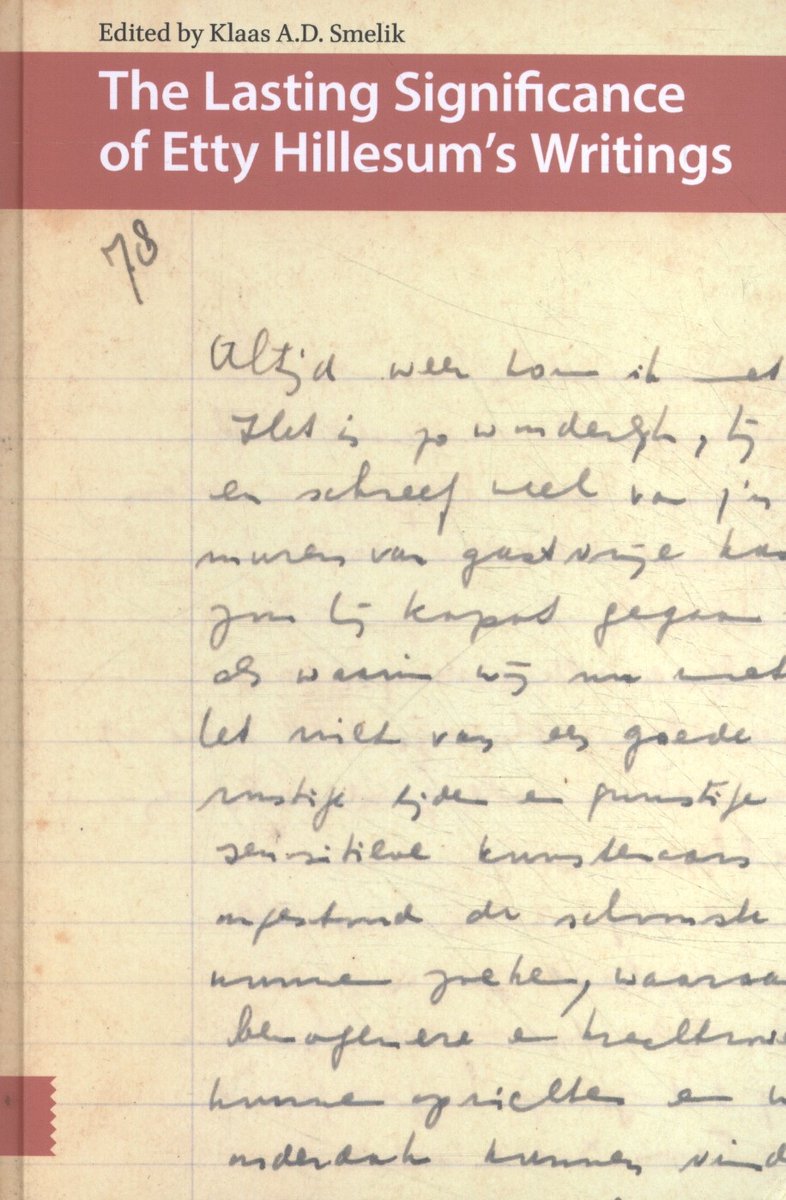 Edited by Klaas A.D. Smelik
The Lasting Significance
of Etty Hillesum's Writings
78
Altijd weer kom ik
Het is zo wonderlijk, hij
en schreef veel van z'n
muren van gastvrije kas
zou hij kapot gegaan
als waarin wij nu moet
het niet van een goede
rustige tijden en gunstige
sensitieve kunstenaars
ongestoord de schoonste
kunnen zoeken, waaraa
bewogenere en krachtrove
kunnen oprichten en w
onderdak kunnen vind